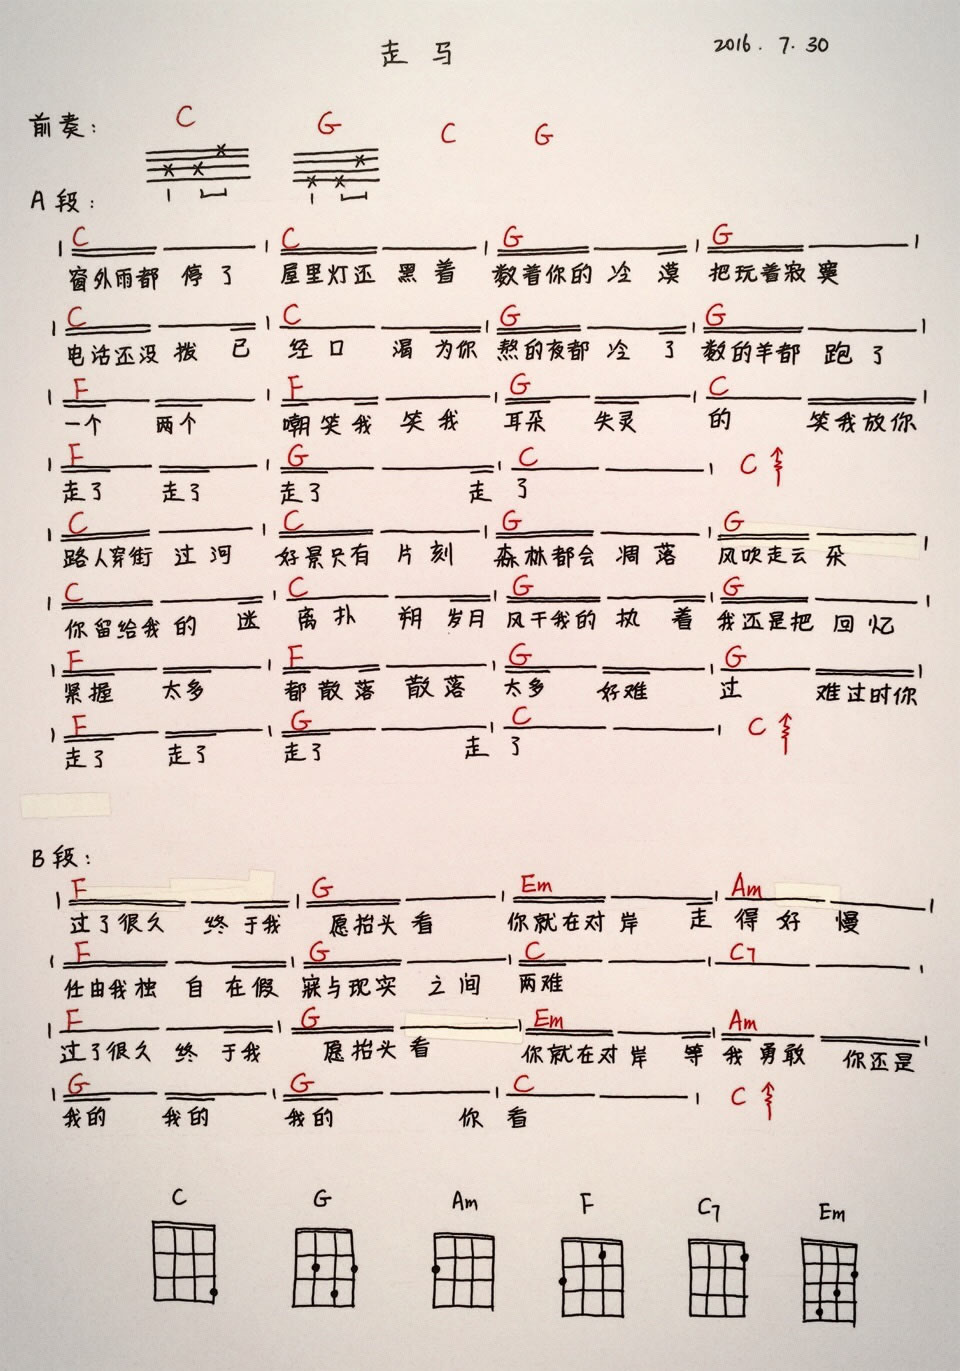 走马 2016.7.30
前奏: C G C G
A段:
C C G G
窗外雨都停了 屋里灯还黑着 数着你的冷漠 把玩着寂寞
C C G G
电话还没拨已 经口渴为你 熬的夜都冷了 数的羊都跑了
F F G C
一个 两个 嘲笑我笑我 耳朵失灵 的 笑我放你
F G C C
走了 走了 走了 走 了
C C G G
路人穿街过河 好景只有片刻 森林都会凋落 风吹走云朵
C C G G
你留给我的迷 离扑朔岁月 风干我的执着 我还是把回忆
F F G G
紧握 太多 都散落散落 太多好难 过 难过时你
F G C C
走了 走了 走了 走 了
B段:
F G Em Am
过了很久终于我 愿抬头看 你就在对岸走 得好慢
F G C C7
任由我独自在假 寐与现实之间 两难
F G Em Am
过了很久终于我 愿抬头看 你就在对岸等 我勇敢 你还是
G G C C
我的 我的 我的 你 看
C G Am F C7 Em